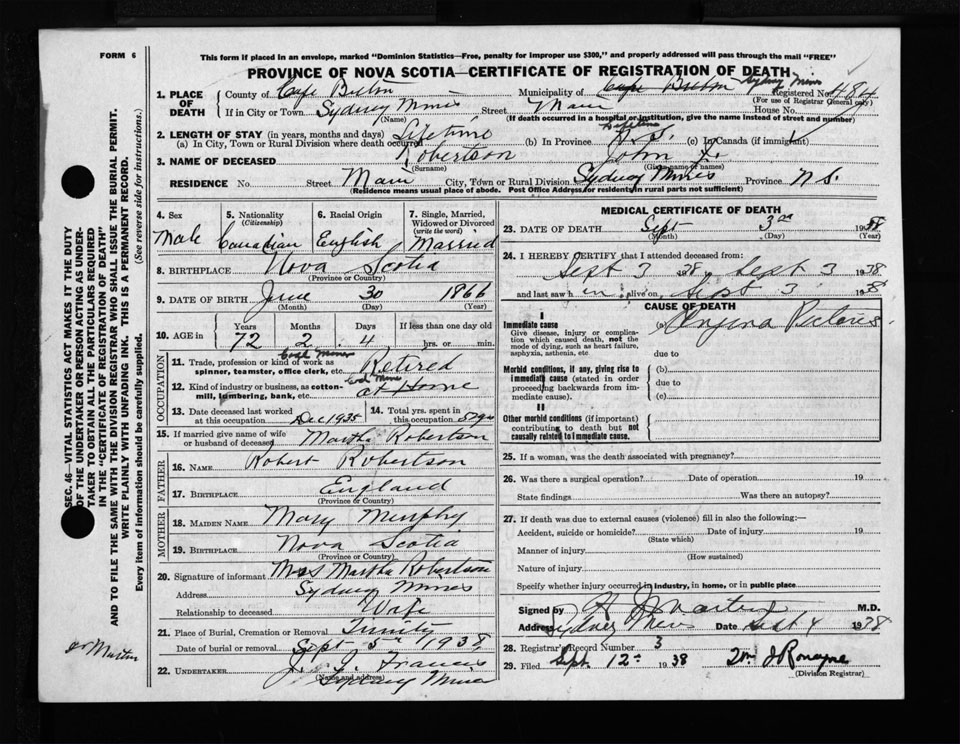 FORM 6
This form if placed in an envelope, marked "Dominion Statistics—Free, penalty for improper use $300," and properly addressed will pass through the mail "FREE"
PROVINCE OF NOVA SCOTIA—CERTIFICATE OF REGISTRATION OF DEATH
SEC. 46—VITAL STATISTICS ACT MAKES IT THE DUTY
OF THE UNDERTAKER OR PERSON ACTING AS UNDER-
TAKER TO OBTAIN ALL THE PARTICULARS REQUIRED
IN THE "CERTIFICATE OF REGISTRATION OF DEATH"
AND TO FILE THE SAME WITH THE DIVISION REGISTRAR WHO SHALL ISSUE THE BURIAL PERMIT.
WRITE PLAINLY WITH UNFADING INK. THIS IS A PERMANENT RECORD.
Every item of information should be carefully supplied. (See reverse side for instructions.)
Dr Martin
1. PLACE OF DEATH
County of Cape Breton Municipality of Cape Breton Sydney Mines Registered No. 484
(For use of Registrar General only)
If in City or Town Sydney Mines Street Main House No.
(Name) (If death occurred in a hospital or institution, give the name instead of street and number)
2. LENGTH OF STAY (in years, months and days)
(a) In City, Town or Rural Division where death occurred Lifetime (b) In Province Lifetime N.S. (c) In Canada (if immigrant)
3. NAME OF DECEASED Robertson John
(Surname) (Given name or names)
RESIDENCE No. Street Main City, Town or Rural Division Sydney Mines Province N S.
(Residence means usual place of abode. Post Office Address for residents in rural parts not sufficient)
4. Sex Male
5. Nationality (Citizenship) Canadian
6. Racial Origin English
7. Single, Married, Widowed or Divorced (write the word) Married
8. BIRTHPLACE Nova Scotia
(Province or Country)
9. DATE OF BIRTH June 30 1866
(Month) (Day) (Year)
10. AGE in Years 72 Months 2 Days 4 If less than one day old hrs. or min.
OCCUPATION
11. Trade, profession or kind of work as spinner, teamster, office clerk, etc. Coal Miner Retired
12. Kind of industry or business, as cotton-mill, lumbering, bank, etc. Coal Mine at Home
13. Date deceased last worked at this occupation Dec 1935
14. Total yrs. spent in this occupation
15. If married give name of wife or husband of deceased Martha Robertson
FATHER
16. NAME Robert Robertson
17. BIRTHPLACE England
(Province or Country)
MOTHER
18. MAIDEN NAME Mary Murphy
19. BIRTHPLACE Nova Scotia
(Province or Country)
20. Signature of informant Mrs Martha Robertson
Address Sydney Mines
Relationship to deceased Wife
21. Place of Burial, Cremation or Removal Trinity
Date of burial or removal Sept 5th 1938
22. UNDERTAKER J. J. Francis
(Name and address)
Sydney Mines
MEDICAL CERTIFICATE OF DEATH
23. DATE OF DEATH Sept 3rd 1938
(Month) (Day) (Year)
24. I HEREBY CERTIFY that I attended deceased from:
Sept 3 1938, Sept 3 1938
and last saw h im alive on Sept 3 1938
CAUSE OF DEATH
I
Immediate cause Angina Pectoris
Give disease, injury or complication which caused death, not the mode of dying, such as heart failure, asphyxia, asthenia, etc
due to
Morbid conditions, if any, giving rise to immediate cause (stated in order proceeding backwards from immediate cause). (b)
due to
(c)
II
Other morbid conditions (if important) contributing to death but not causally related to immediate cause.
25. If a woman, was the death associated with pregnancy?
26. Was there a surgical operation? Date of operation 19
State findings Was there an autopsy?
27. If death was due to external causes (violence) fill in also the following:—
Accident, suicide or homicide? Date of injury 19
(State which)
Manner of injury
(How sustained)
Nature of injury
Specify whether injury occurred in industry, in home, or in public place
Signed by Martin M.D.
Address Sydney Mines Date Sept 4 1938
28. Registrar's Record Number 3
29. Filed Sept 12th 1938 Wm J Ronayne
(Division Registrar)